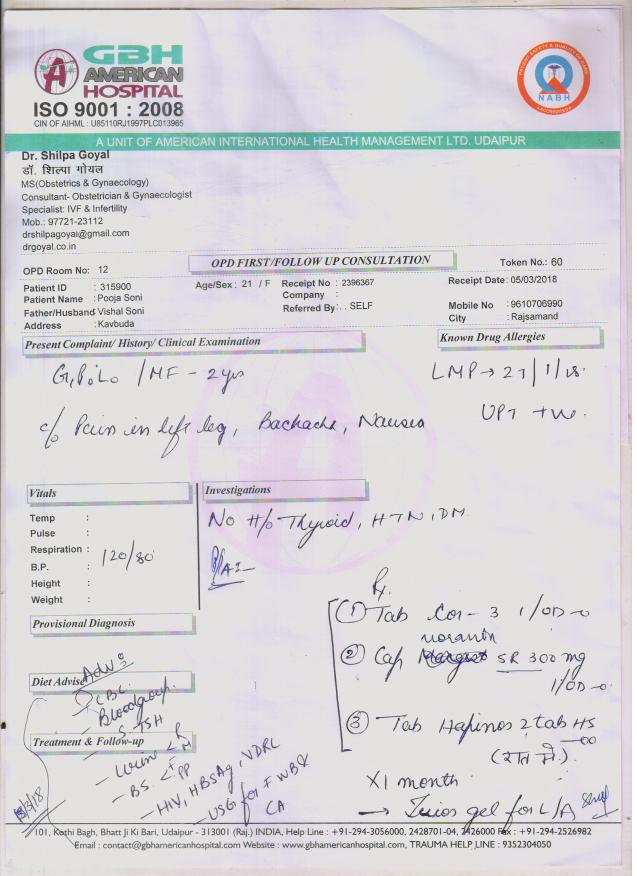 GBH
AMERICAN
HOSPITAL
ISO 9001 : 2008
CIN OF AIHML : U85110RJ1997PLC013965
PATIENT SAFETY & QUALITY OF CARE
NABH
A UNIT OF AMERICAN INTERNATIONAL HEALTH MANAGEMENT LTD. UDAIPUR
Dr. Shilpa Goyal
डॉ. शिल्पा गोयल
MS(Obstetrics & Gynaecology)
Consultant- Obstetrician & Gynaecologist
Specialist: IVF & Infertility
Mob.: 97721-23112
drshilpagoyal@gmail.com
drgoyal.co.in
OPD Room No: 12
OPD FIRST/FOLLOW UP CONSULTATION
Token No.: 60
Patient ID : 315900
Age/Sex : 21 / F
Receipt No : 2396367
Receipt Date: 05/03/2018
Patient Name : Pooja Soni
Company :
Father/Husband Vishal Soni
Referred By: . SELF
Mobile No : 9610706990
Address : Kavbuda
City : Rajsamand
Present Complaint/ History/ Clinical Examination
Known Drug Allergies
G1P0L0 / MF - 2 yrs
LMP → 27/1/18
UPT +ve.
c/o Pain in left leg, Backache, Nausea
Vitals
Investigations
Temp :
Pulse :
Respiration :
B.P. : 120/80
Height :
Weight :
No H/o Thyroid, HTN, DM
Provisional Diagnosis
Diet Advise
Treatment & Follow-up
Adv:
- CBC
- Bloodgroup
- S. TSH
- Urine < R M
- BS < F PP
- HIV, HBSAg, VDRL
- USG for FWB &
CA
Rx
① Tab Cor-3 1/OD
② Cap SR 300 mg
1/OD
③ Tab 2 tab HS
(रात में)
X1 month
→ gel for L/A
101, Kothi Bagh, Bhatt Ji Ki Bari, Udaipur - 313001 (Raj.) INDIA, Help Line : +91-294-3056000, 2428701-04, 2426000 Fax : +91-294-2526982
Email : contact@gbhamericanhospital.com Website : www.gbhamericanhospital.com, TRAUMA HELP LINE : 9352304050